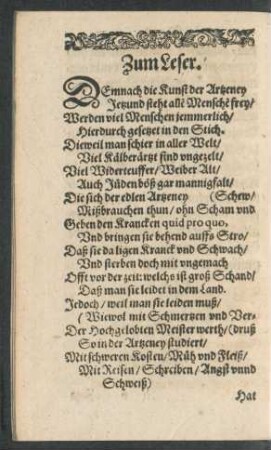 Zum Leser.
DEmnach die Kunst der Artzeney
Jetzund steht allē Menschē frey/
Werden viel Menschen jemmerlich/
Hierdurch gesetzet in den Stich.
Dieweil man schier in aller Welt/
Viel Kälberärtzt find vngezelt/
Viel Widerteuffer/ Weiber Alt/
Auch Jüden böß gar mannigfalt/
Die sich der edlen Artzeney (Schew/
Mißbrauchen thun/ ohn Scham vnd
Geben den Krancken quid pro quo,
Vnd bringen sie behend auffs Stro/
Daß sie da ligen Kranck vnd Schwach/
Vnd sterben doch mit vngemach
Offt vor der zeit: welchs ist groß Schand/
Daß man sie leidet in dem Land.
Jedoch/ weil man sie leiden muß/
(Wiewol mit Schmertzen vnd Ver-
Der Hochgelobten Meister werth/ (druß
So in der Artzeney studiert/
Mit schweren Kosten/ Müh vnd Fleiß/
Mit Reisen/ Schreiben/ Angst vnnd
Schweiß)
Hat